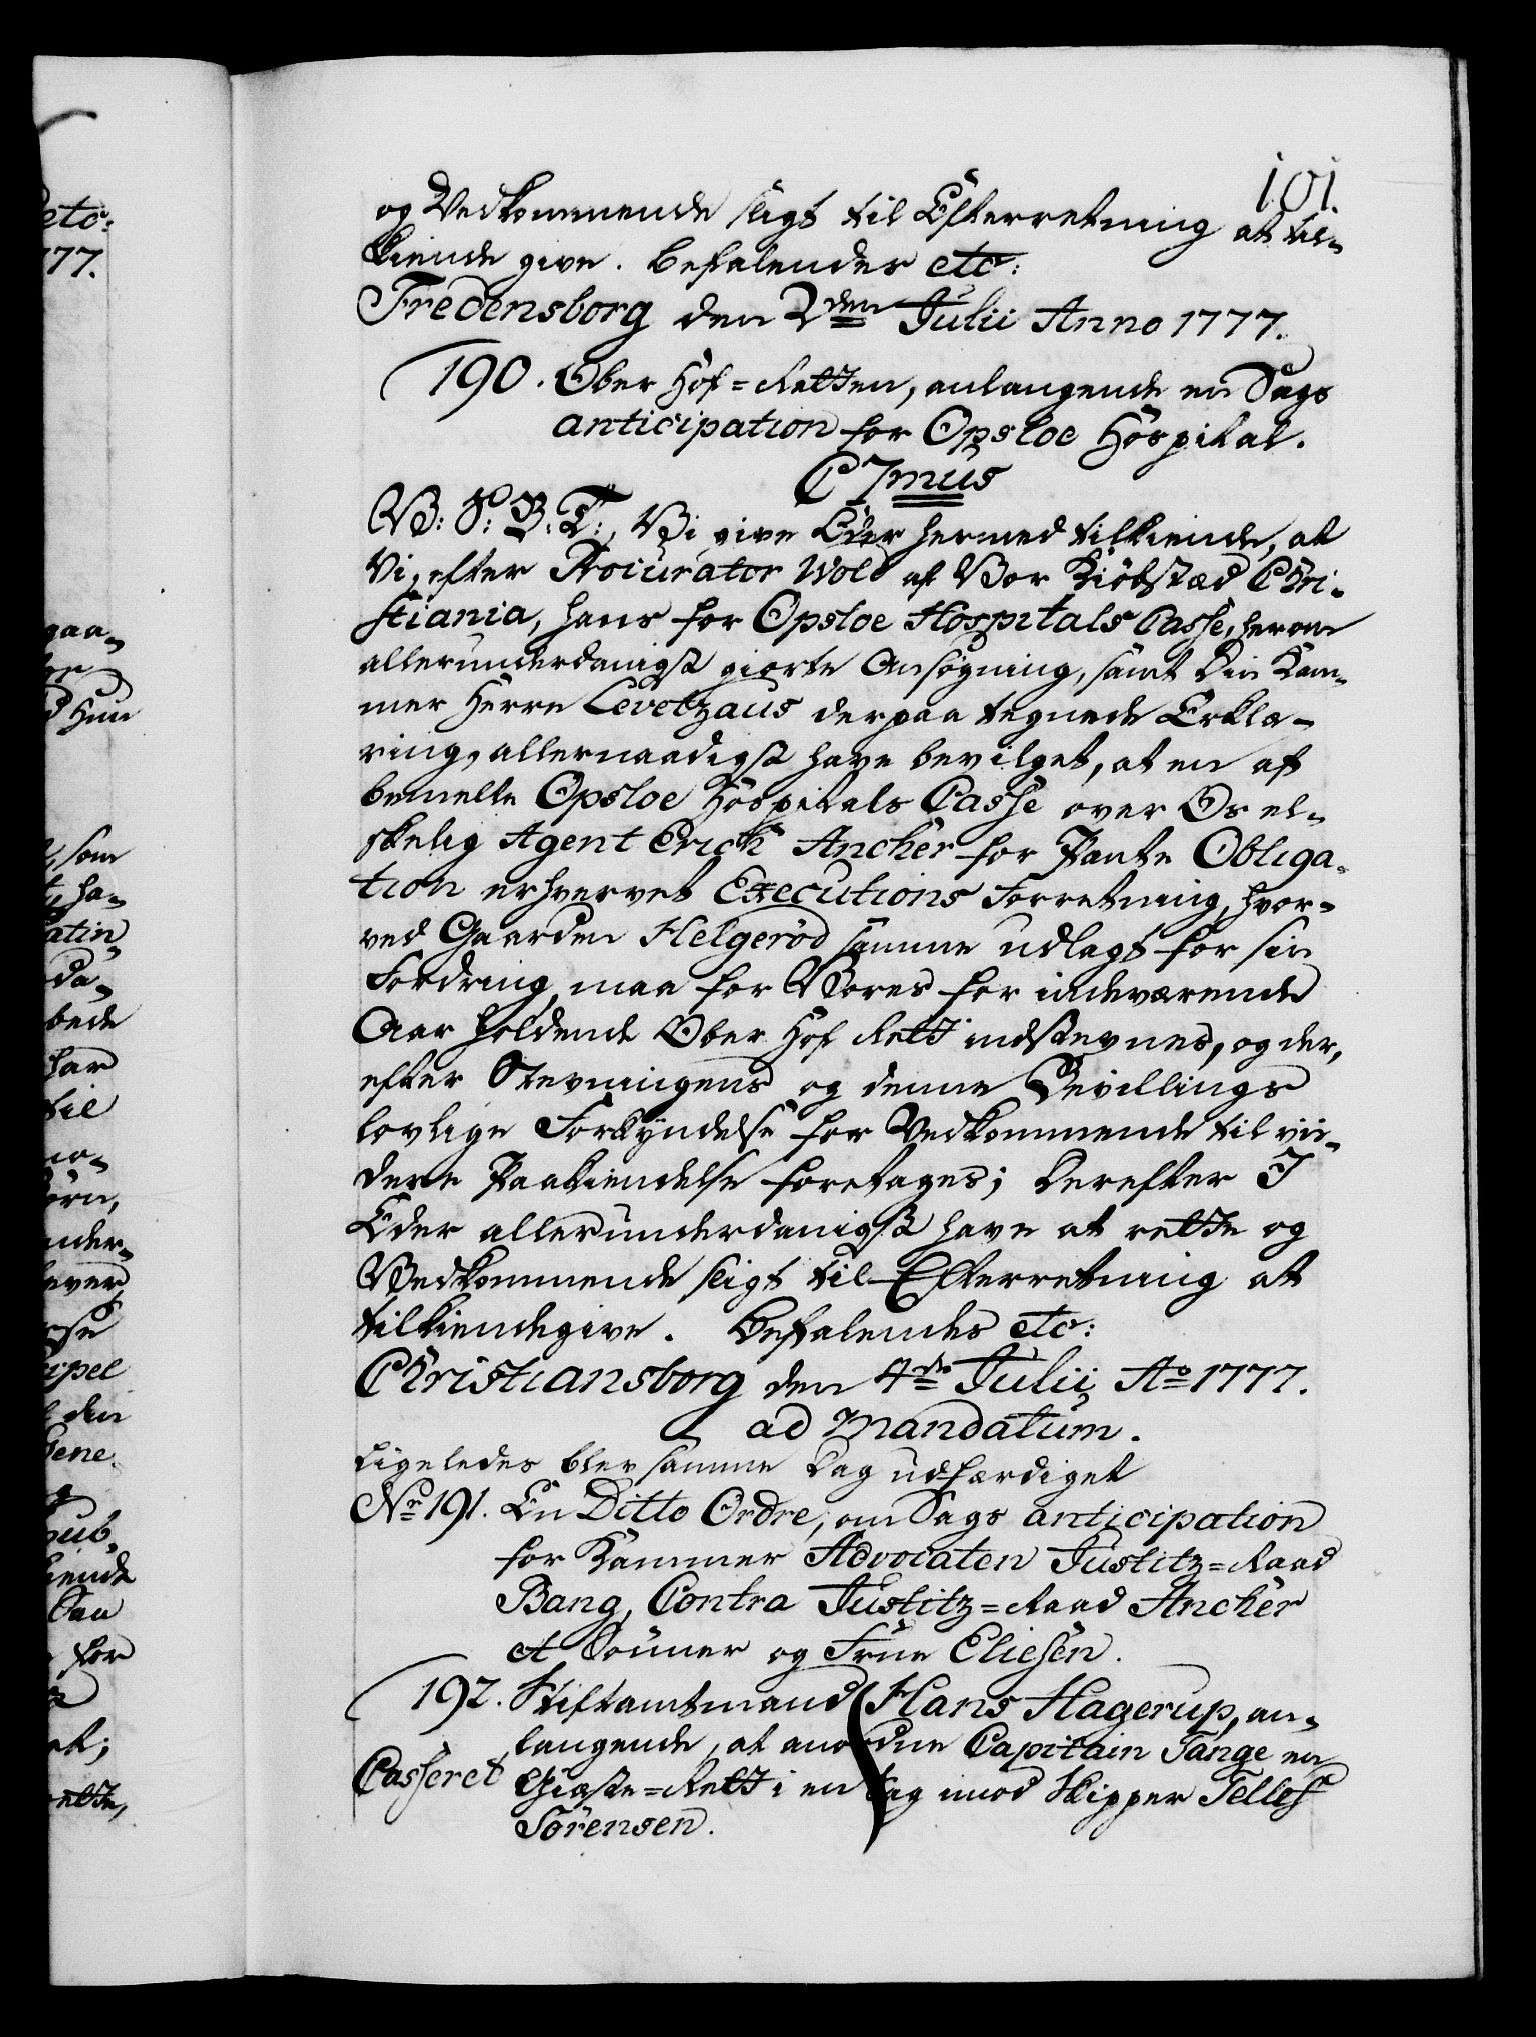 101.
og Vedkommende sligt til Efterretning at til-
kiende give. Befalendes etc:
Fredensborg den 2den Julii Anno 1777.
190. Ober Hof=Retten, anlangende en Sags
anticipation for Opsloe Hospital.
C 7mus
V: S: B: T:, Vi give Eder hermed tilkiende, at
Vi, efter Procurator Wold af Vor Kiöbstæd Chri-
stiania, hans for Opsloe Hospitals Casse, herom
allerunderdanigst giorte Ansøgning, samt Din Kam-
mer Herre Levetzaus derpaa tegnede Erklæ-
ring, allernaadigst have bevilget, at en af
bemelte Opsloe Hospitals Casse over Os el-
skelig Agent Erich Ancher for Pante Obliga-
tion erhvervet Executions Forretning, hvor-
ved Gaarden Helgeröd samme udlagt for sin
Fordring, maa for Vores for indeværende
Aar holdende Ober Hof Rett indstevnes, og der,
efter Stevningens og denne Bevillings
lovlige Forkyndelse for Vedkommende til vii-
dere Paakiendelse foretages; Derefter I
Eder allerunderdanigst have at rette og
Vedkommende sligt til Efterretning at
tilkiendegive. Befalendes etc:
Christiansborg den 4de Julii Ao 1777.
ad Mandatum.
Ligeledes blev samme Dag udfærdiget
No 191. En Ditto Ordre, om Sags anticipation
for Kammer Advocaten Justitz=Raad
Bang, Contra Justitz=Raad Ancher
et Sönner og Frue Eliesen.
192. Stiftamtmand Hans Hagerup, an-
langende, at anordne Capitain Tange en
Casseret
Giæste=Rett i en Sag imod Skipper Tellef
Sörensen.
eto:
77.
gaa-
d hun
, som
ha-
atin
da-
bede
har
til
örn,
nder-
ever
ipel
den
Gene
pub.
iende
for
at;
rette,